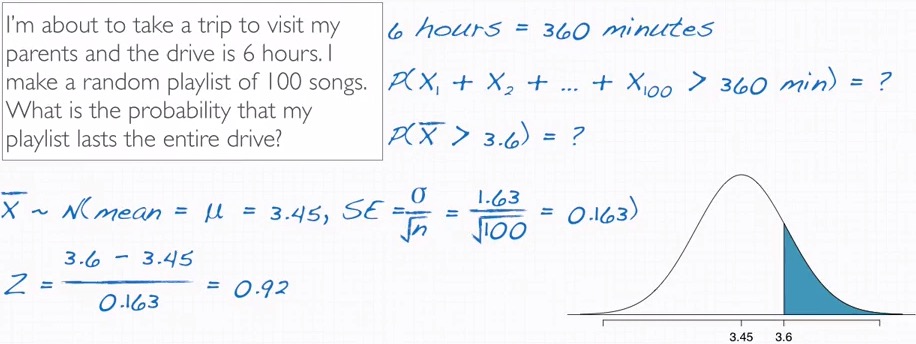 I'm about to take a trip to visit my
parents and the drive is 6 hours. I
make a random playlist of 100 songs.
What is the probability that my
playlist lasts the entire drive?
6 hours = 360 minutes
P(X₁ + X₂ + ... + X₁₀₀ > 360 min) = ?
P(X̅ > 3.6) = ?
X̅ ~ N(mean = μ = 3.45, SE = σ/√n = 1.63/√100 = 0.163)
Z = (3.6 - 3.45)/0.163 = 0.92
3.45 3.6